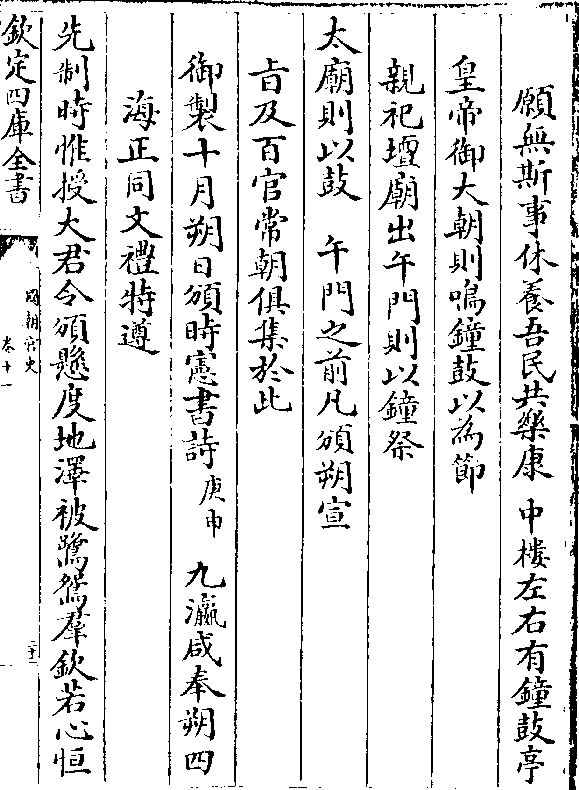 願無斯事休養吾民共樂康　中樓左右有鐘鼓亭
皇帝御大朝則鳴鐘鼓以為節
親祀壇廟出午門則以鐘祭
太廟則以鼓　午門之前凡頒朔宣
旨及百官常朝俱集於此
御製十月朔日頒時憲書詩庚申　九瀛咸奉朔四
海正同文禮特遵
先制時惟授大君令頒懸度地澤被鷺鴛羣欽若心恒
欽定四庫全書
國朝宮史
卷十一